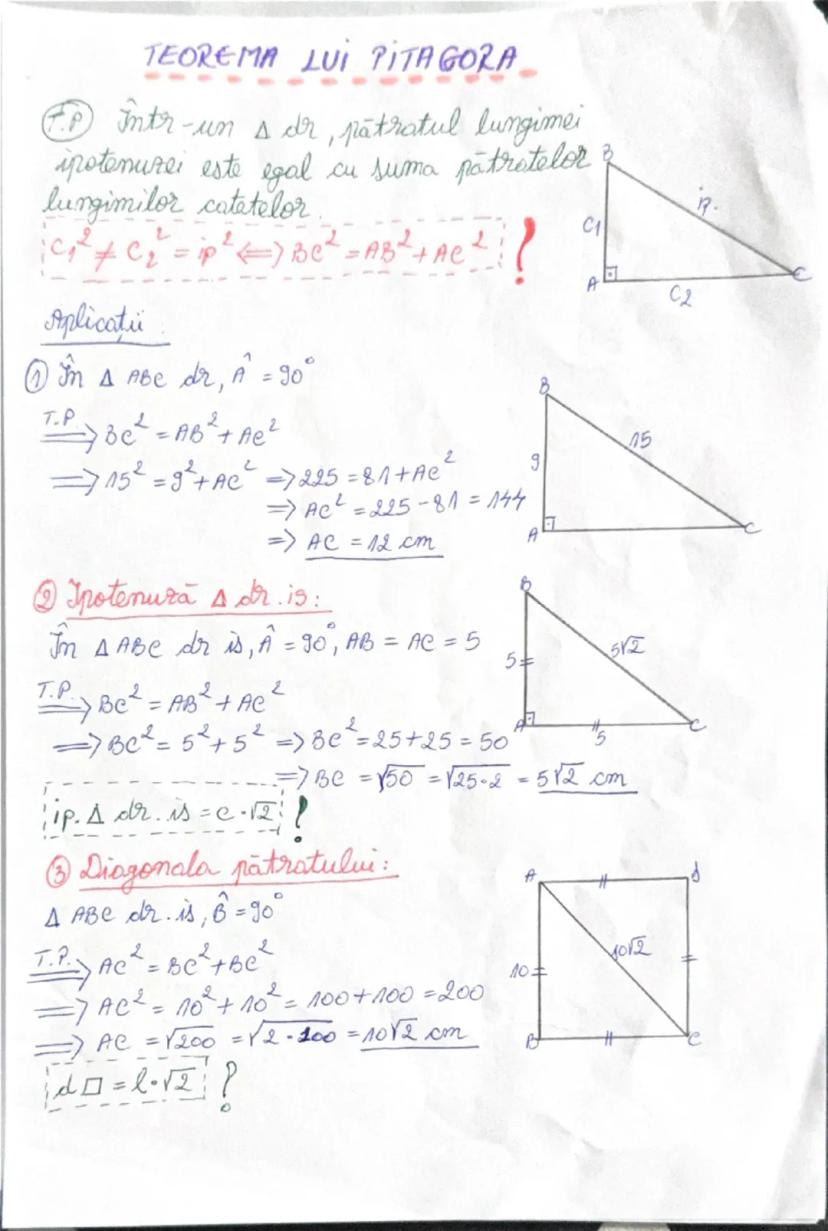 TEOREMA LUI PITAGORA
T.P Într-un Δ dr, pătratul lungimei
ipotenuzei este egal cu suma pătratelor
lungimilor catetelor.
C₁² ≠ C₂² = ip² ⟺ BC² = AB² + AC² !
B
ip.
C1
A
C2
C
Aplicații
① În Δ ABC dr, Â = 90°
T.P. ⟹ BC² = AB² + AC²
⟹ 15² = 9² + AC² ⟹ 225 = 81 + AC²
⟹ AC² = 225 - 81 = 144
⟹ AC = 12 cm
B
15
9
A
C
② Ipotenuză Δ dr. is:
În Δ ABC dr is, Â = 90°, AB = AC = 5
T.P. ⟹ BC² = AB² + AC²
⟹ BC² = 5² + 5² ⟹ BC² = 25 + 25 = 50
⟹ BC = √50 = √25·2 = 5√2 cm
ip. Δ dr. is = c·√2 !
B
5√2
5
A
5
C
③ Diagonala pătratului:
Δ ABC dr. is, B̂ = 90°
T.P. ⟹ AC² = BC² + BC²
⟹ AC² = 10² + 10² = 100 + 100 = 200
⟹ AC = √200 = √2·100 = 10√2 cm
d□ = l·√2 !
A
d
10√2
10
B
C